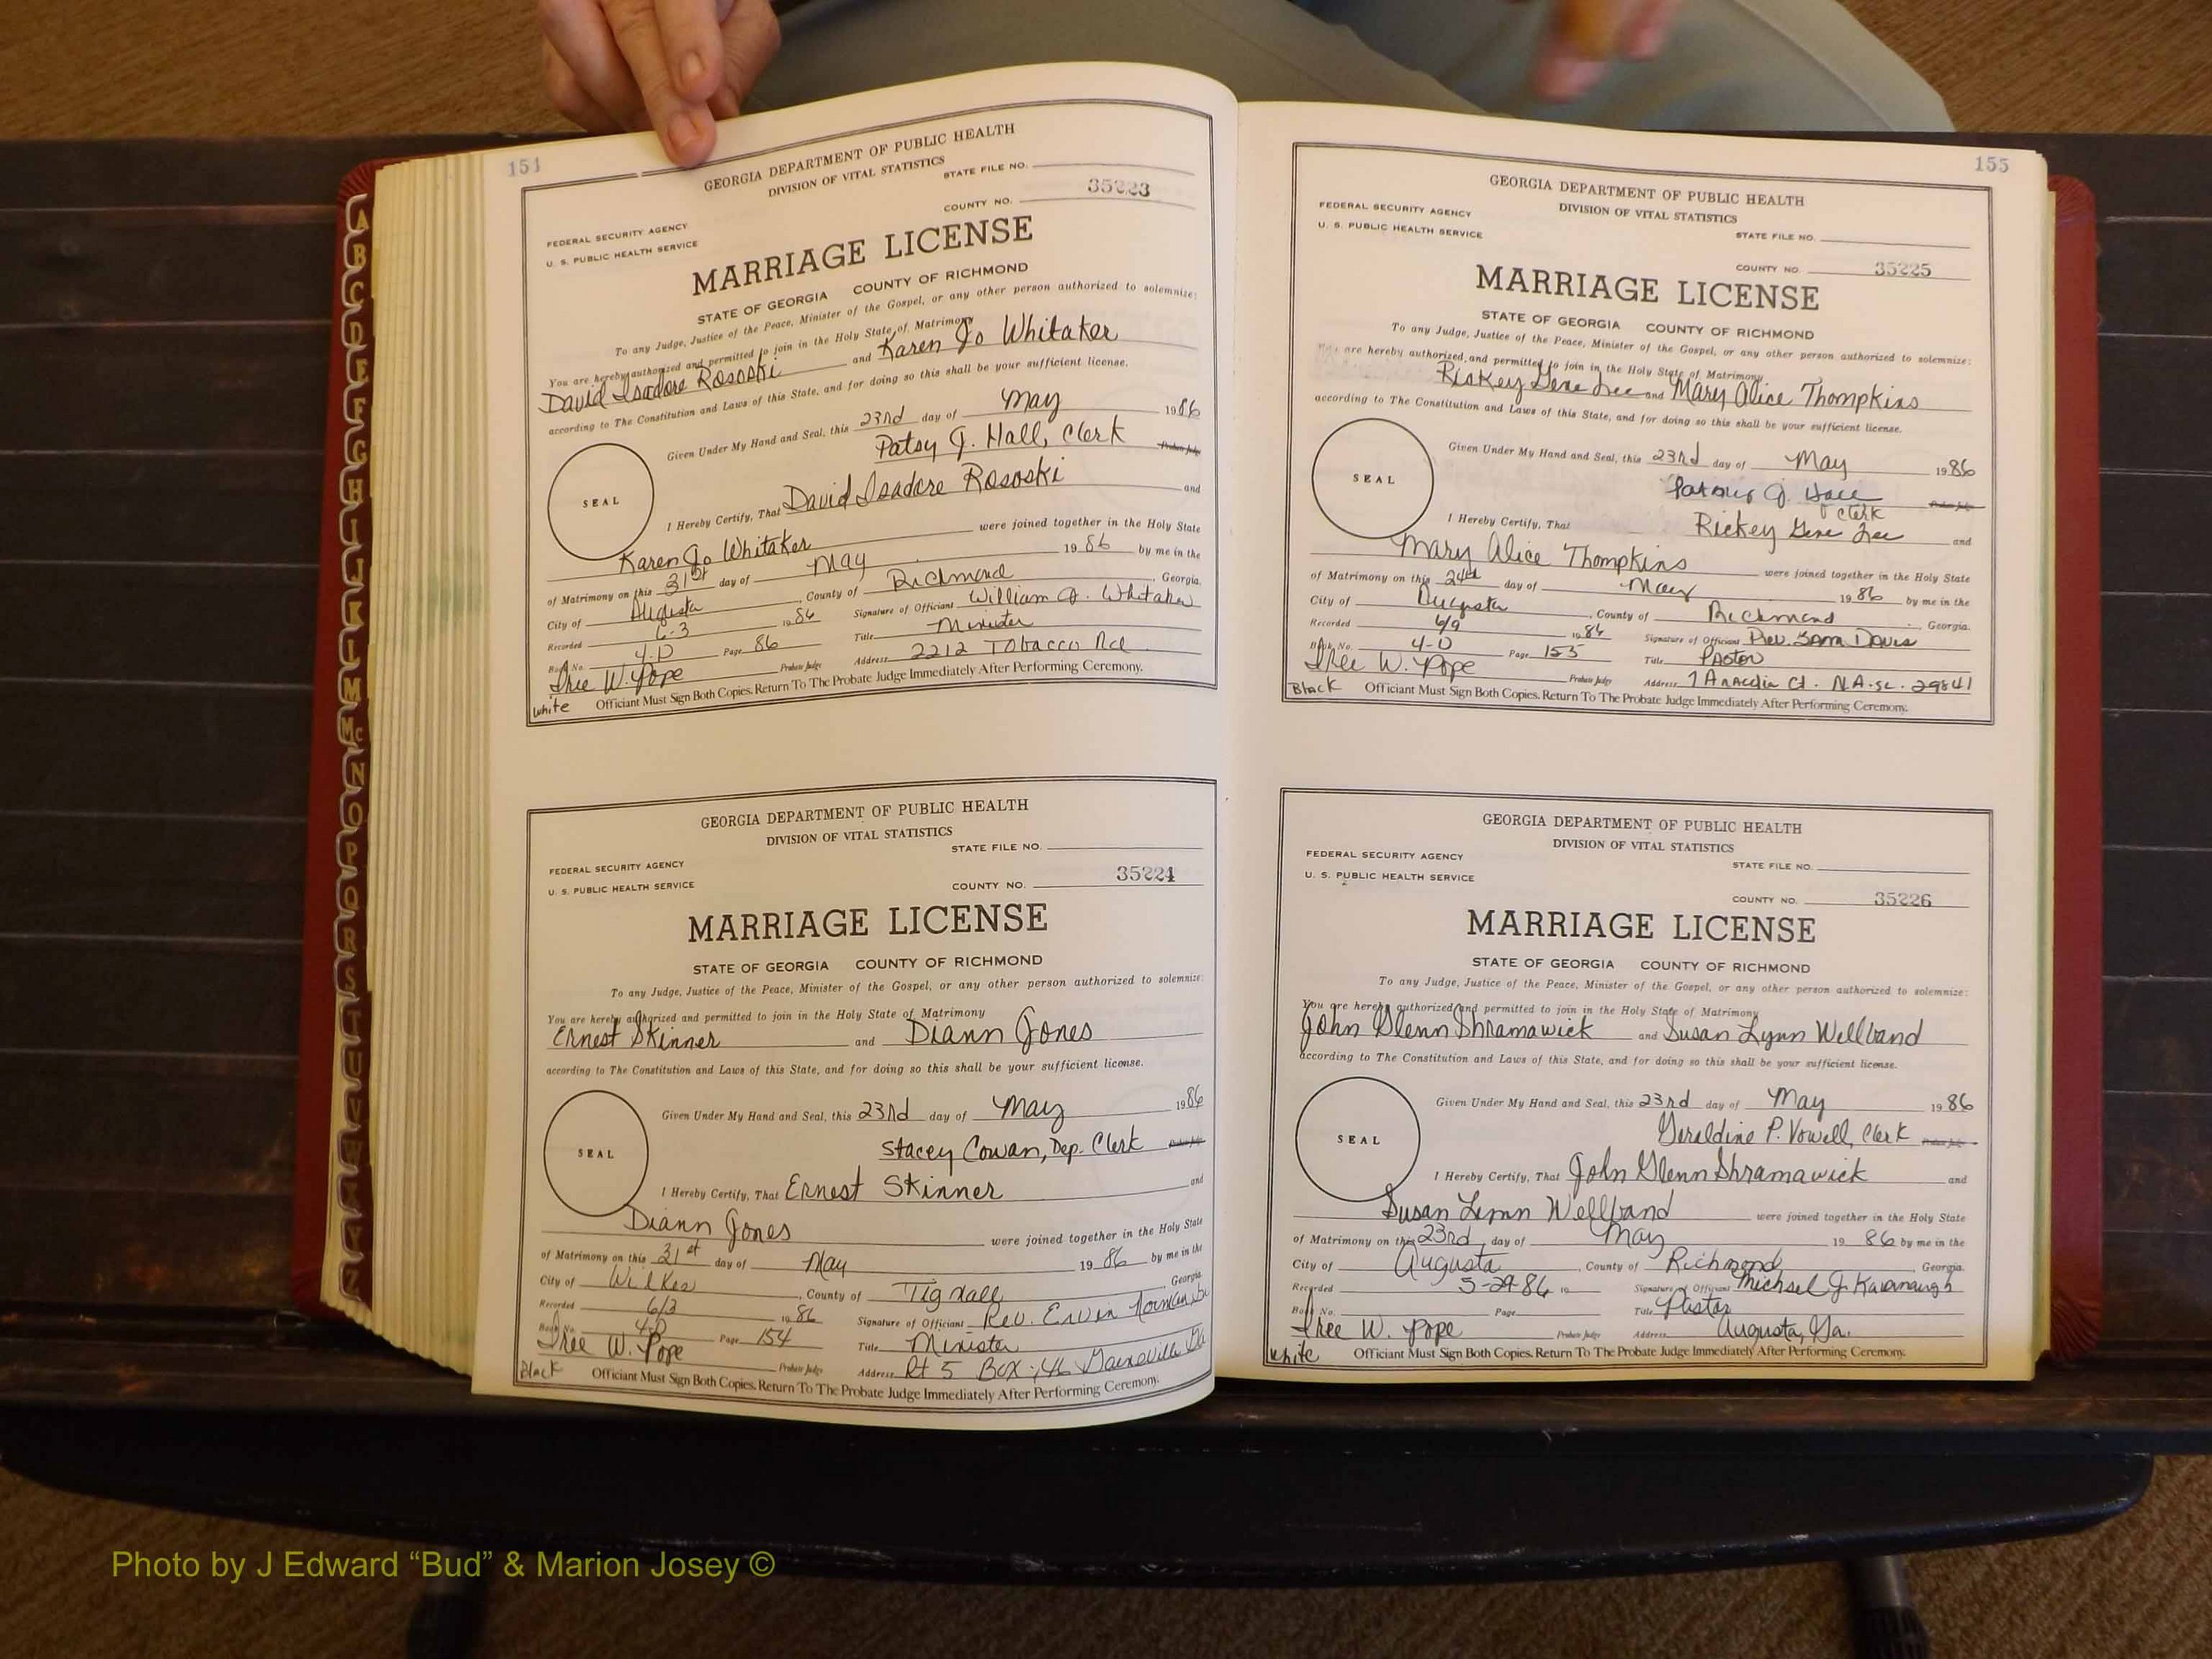 154
GEORGIA DEPARTMENT OF PUBLIC HEALTH
DIVISION OF VITAL STATISTICS
STATE FILE NO.
FEDERAL SECURITY AGENCY
COUNTY NO. 35223
U. S. PUBLIC HEALTH SERVICE
MARRIAGE LICENSE
STATE OF GEORGIA COUNTY OF RICHMOND
To any Judge, Justice of the Peace, Minister of the Gospel, or any other person authorized to solemnize:
You are hereby authorized and permitted to join in the Holy State of Matrimony
David Isadore Rososki and Karen Jo Whitaker
according to The Constitution and Laws of this State, and for doing so this shall be your sufficient license.
Given Under My Hand and Seal, this 23rd day of May 1986
Patsy J. Hall, Clerk Probate Judge
SEAL
I Hereby Certify, That David Isadore Rososki and
Karen Jo Whitaker were joined together in the Holy State
of Matrimony on this 31st day of May 1986 by me in the
City of Augusta, County of Richmond, Georgia.
Recorded 6-3 1986 Signature of Officiant William J. Whitaker
Book No. 4-D Page 86 Title Minister
Iree W. Pope Probate Judge Address 2212 Tobacco Rd
White Officiant Must Sign Both Copies. Return To The Probate Judge Immediately After Performing Ceremony.
GEORGIA DEPARTMENT OF PUBLIC HEALTH
DIVISION OF VITAL STATISTICS
STATE FILE NO.
FEDERAL SECURITY AGENCY
U. S. PUBLIC HEALTH SERVICE
COUNTY NO. 35224
MARRIAGE LICENSE
STATE OF GEORGIA COUNTY OF RICHMOND
To any Judge, Justice of the Peace, Minister of the Gospel, or any other person authorized to solemnize:
You are hereby authorized and permitted to join in the Holy State of Matrimony
Ernest Skinner and Diann Jones
according to The Constitution and Laws of this State, and for doing so this shall be your sufficient license.
Given Under My Hand and Seal, this 23rd day of May 1986
Stacey Cowan, Dep. Clerk Probate Judge
SEAL
I Hereby Certify, That Ernest Skinner and
Diann Jones were joined together in the Holy State
of Matrimony on this 31st day of May 1986 by me in the
City of Wilkes, County of Tignall, Georgia.
Recorded 6/3 1986 Signature of Officiant Rev. Ervin
Book No. 4-D Page 154 Title Minister
Iree W. Pope Probate Judge Address Rt 5 Box 146 Gainesville Ga
Black Officiant Must Sign Both Copies. Return To The Probate Judge Immediately After Performing Ceremony.
155
GEORGIA DEPARTMENT OF PUBLIC HEALTH
DIVISION OF VITAL STATISTICS
FEDERAL SECURITY AGENCY
U. S. PUBLIC HEALTH SERVICE
STATE FILE NO.
COUNTY NO. 35225
MARRIAGE LICENSE
STATE OF GEORGIA COUNTY OF RICHMOND
To any Judge, Justice of the Peace, Minister of the Gospel, or any other person authorized to solemnize:
You are hereby authorized and permitted to join in the Holy State of Matrimony
Rickey Gene Lee and Mary Alice Thompkins
according to The Constitution and Laws of this State, and for doing so this shall be your sufficient license.
Given Under My Hand and Seal, this 23rd day of May 1986
J. Hall Probate Judge
SEAL
Clerk
I Hereby Certify, That Rickey Gene Lee and
Mary Alice Thompkins were joined together in the Holy State
of Matrimony on this 24th day of May 1986 by me in the
City of Augusta, County of Richmond, Georgia.
Recorded 6/9 1986 Signature of Officiant Rev. Sam Davis
Book No. 4-D Page 155 Title Pastor
Iree W. Pope Probate Judge Address 7 Arcadia Ct. N.A. SC. 29841
Black Officiant Must Sign Both Copies. Return To The Probate Judge Immediately After Performing Ceremony.
GEORGIA DEPARTMENT OF PUBLIC HEALTH
DIVISION OF VITAL STATISTICS
FEDERAL SECURITY AGENCY
STATE FILE NO.
U. S. PUBLIC HEALTH SERVICE
COUNTY NO. 35226
MARRIAGE LICENSE
STATE OF GEORGIA COUNTY OF RICHMOND
To any Judge, Justice of the Peace, Minister of the Gospel, or any other person authorized to solemnize:
You are hereby authorized and permitted to join in the Holy State of Matrimony
John Glenn Shramawick and Susan Lynn Wellband
according to The Constitution and Laws of this State, and for doing so this shall be your sufficient license.
Given Under My Hand and Seal, this 23rd day of May 1986
Geraldine P. Vowell, Clerk Probate Judge
SEAL
I Hereby Certify, That John Glenn Shramawick and
Susan Lynn Wellband were joined together in the Holy State
of Matrimony on this 23rd day of May 1986 by me in the
City of Augusta, County of Richmond, Georgia.
Recorded 5-29-86 19 Signature of Officiant Michael J. Kavanaugh
Book No. Page Title Pastor
Iree W. Pope Probate Judge Address Augusta, Ga.
White Officiant Must Sign Both Copies. Return To The Probate Judge Immediately After Performing Ceremony.
A
B
C
D
E
F
G
H
I
J
K
L
M
Mc
N
O
P
Q
R
S
T
U
V
W
X
Y
Z
Photo by J Edward “Bud” & Marion Josey ©